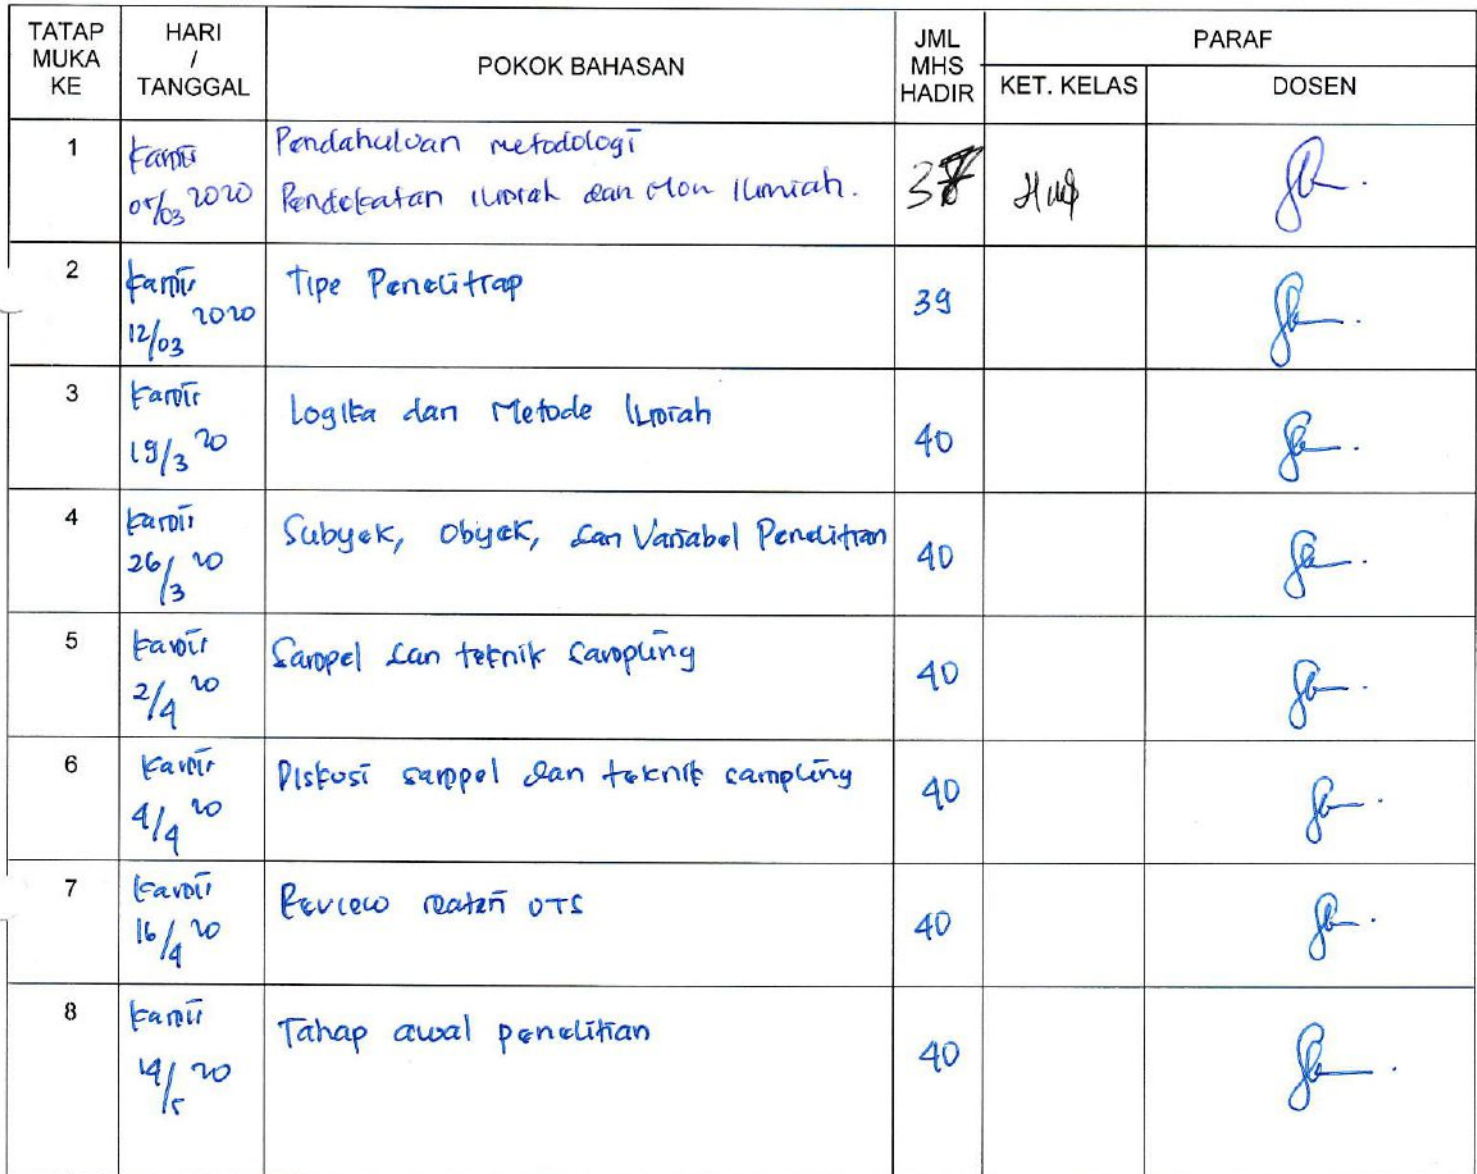 TATAP MUKA KE
HARI / TANGGAL
POKOK BAHASAN
JML MHS HADIR
PARAF
KET. KELAS
DOSEN
1
Kamis
05/03 2020
Pendahuluan metodologi
Pendekatan Ilmiah dan Non Ilmiah.
2
Kamis
12/03 2020
Tipe Penelitian
39
3
Kamis
19/3 20
Logika dan Metode Ilmiah
40
4
Kamis
26/3 20
Subyek, Obyek, dan Variabel Penelitian
40
5
Kamis
2/4 20
Sampel dan teknik sampling
40
6
Kamis
4/4 20
Diskusi sampel dan teknik sampling
40
7
Kamis
16/4 20
Review materi UTS
40
8
Kamis
14/5 20
Tahap awal penelitian
40